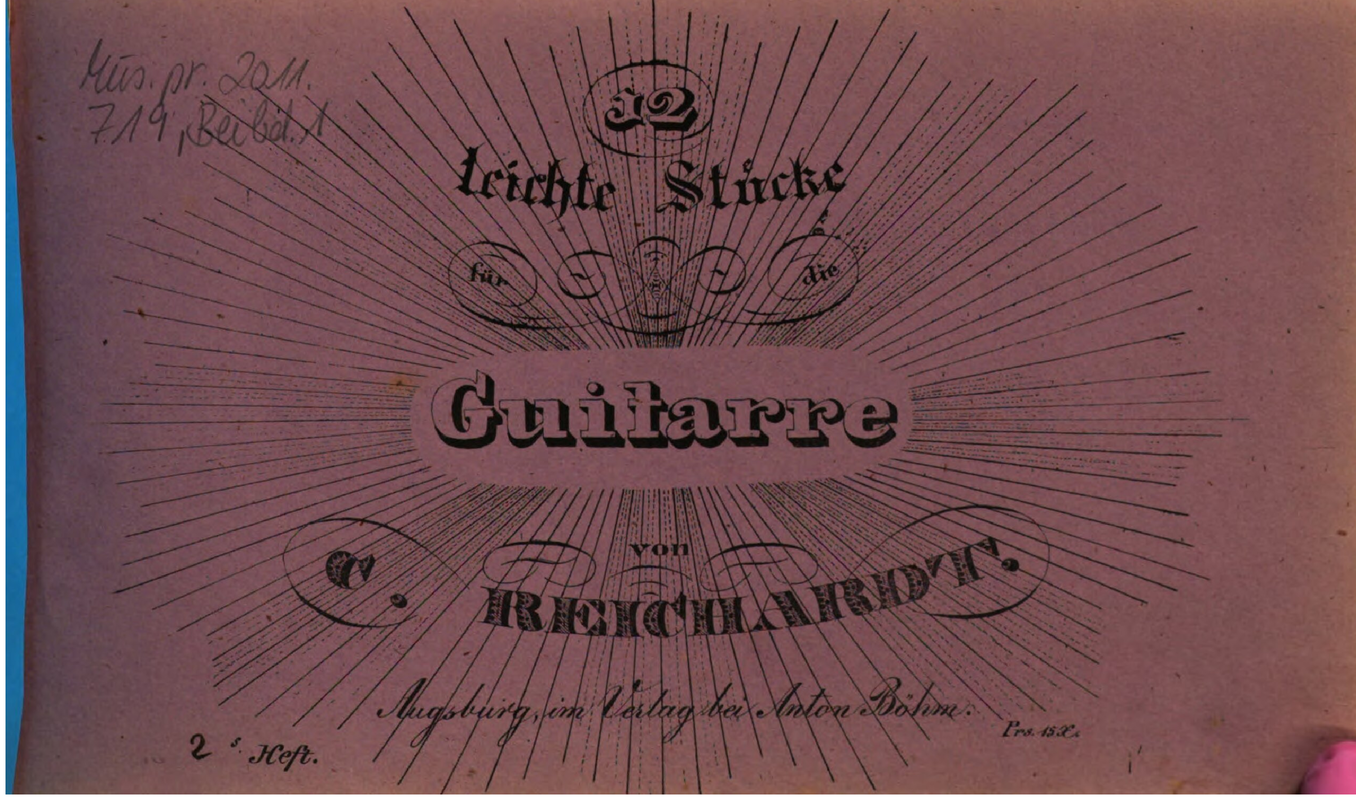 Mus. pr. 2011.
719, Beibd. 1
12
leichte Stücke
für die
Guitarre
von
C. REICHARDT.
Augsburg, im Verlag bei Anton Böhm.
Prs. 15 X.
2 s. Heft.